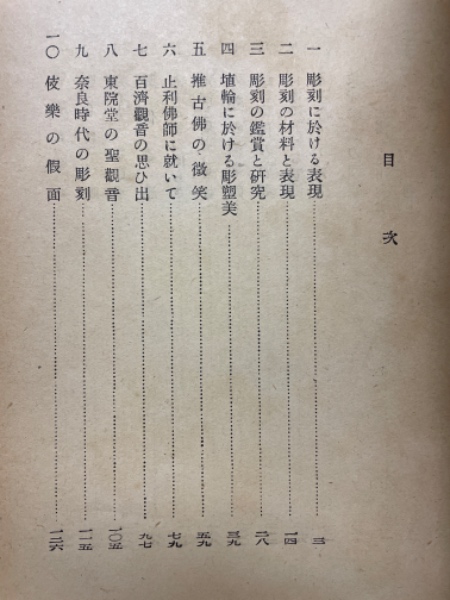 目次
一 彫刻に於ける表現……三
二 彫刻の材料と表現……一四
三 彫刻の鑑賞と研究……二八
四 埴輪に於ける彫塑美……三九
五 推古佛の微笑……五九
六 止利佛師に就いて……七九
七 百濟觀音の思ひ出……九七
八 東院堂の聖觀音……一〇五
九 奈良時代の彫刻……一一五
一〇 伎樂の假面……一二六